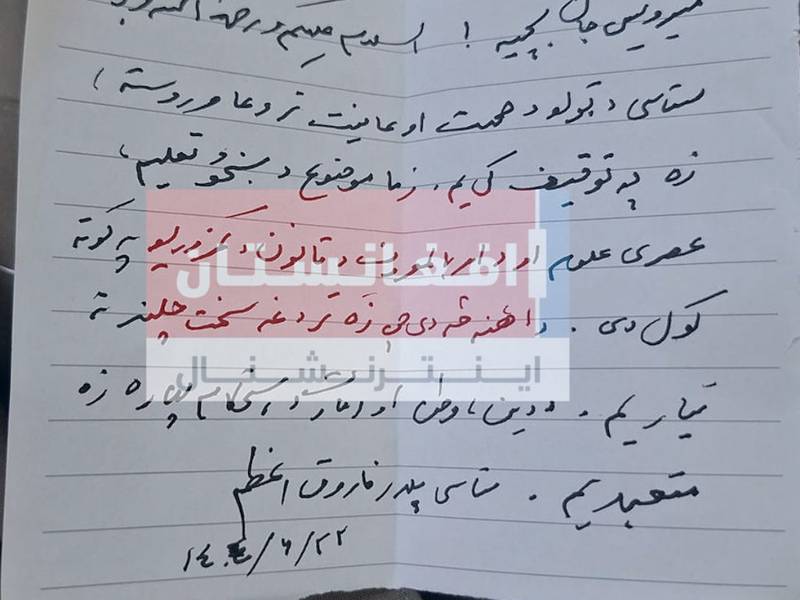 میرویس جان بچیه! السلام علیکم ورحمة الله
ستاسی د ټولو د صحت او عافیت تر دعا وروسته،
زه په توقیف کې یم. زما موضوع د ښځو تعلیم،
عصري علوم او د امر بالمعروف د قانون د کمزوریو په ګوته
کول دي. دا هغه څه دي چې زه تر دغه سخت چلند ته
تیار یم. د دین، وطن او استحکام لپاره زه
متعهد یم. ستاسی پلار فاروق اعظم
۱۴۰۴/۶/۲۲
افغانستان
اینترنشنال